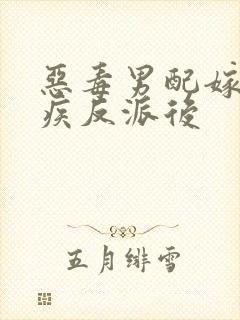 惡毒男配嫁
疾反派後
五月緋雪